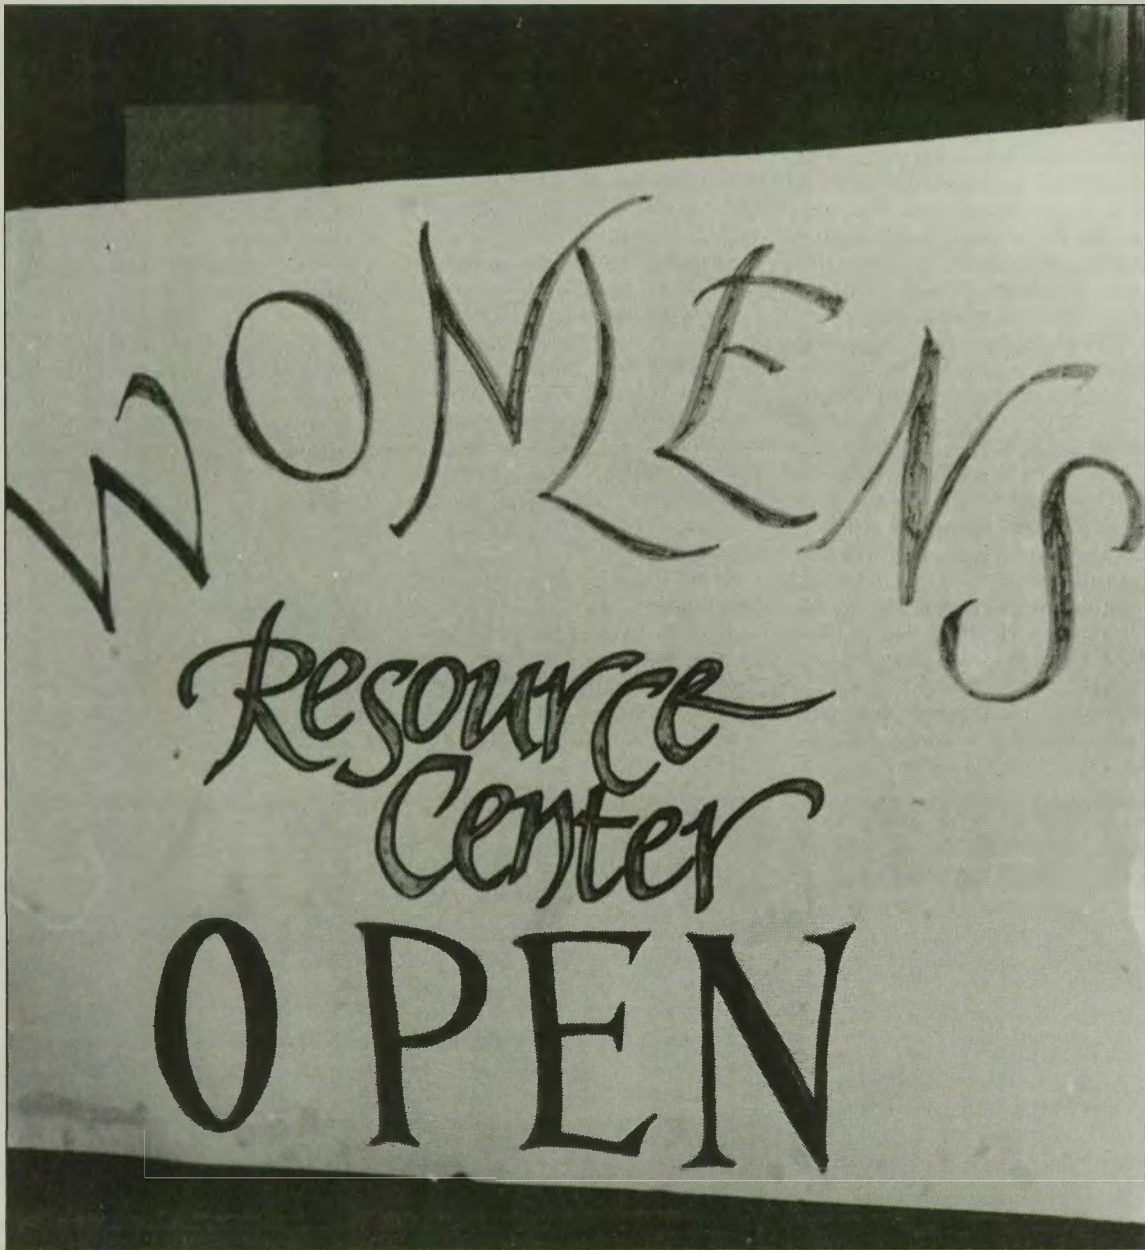 WOMENS
Resource
Center
OPEN